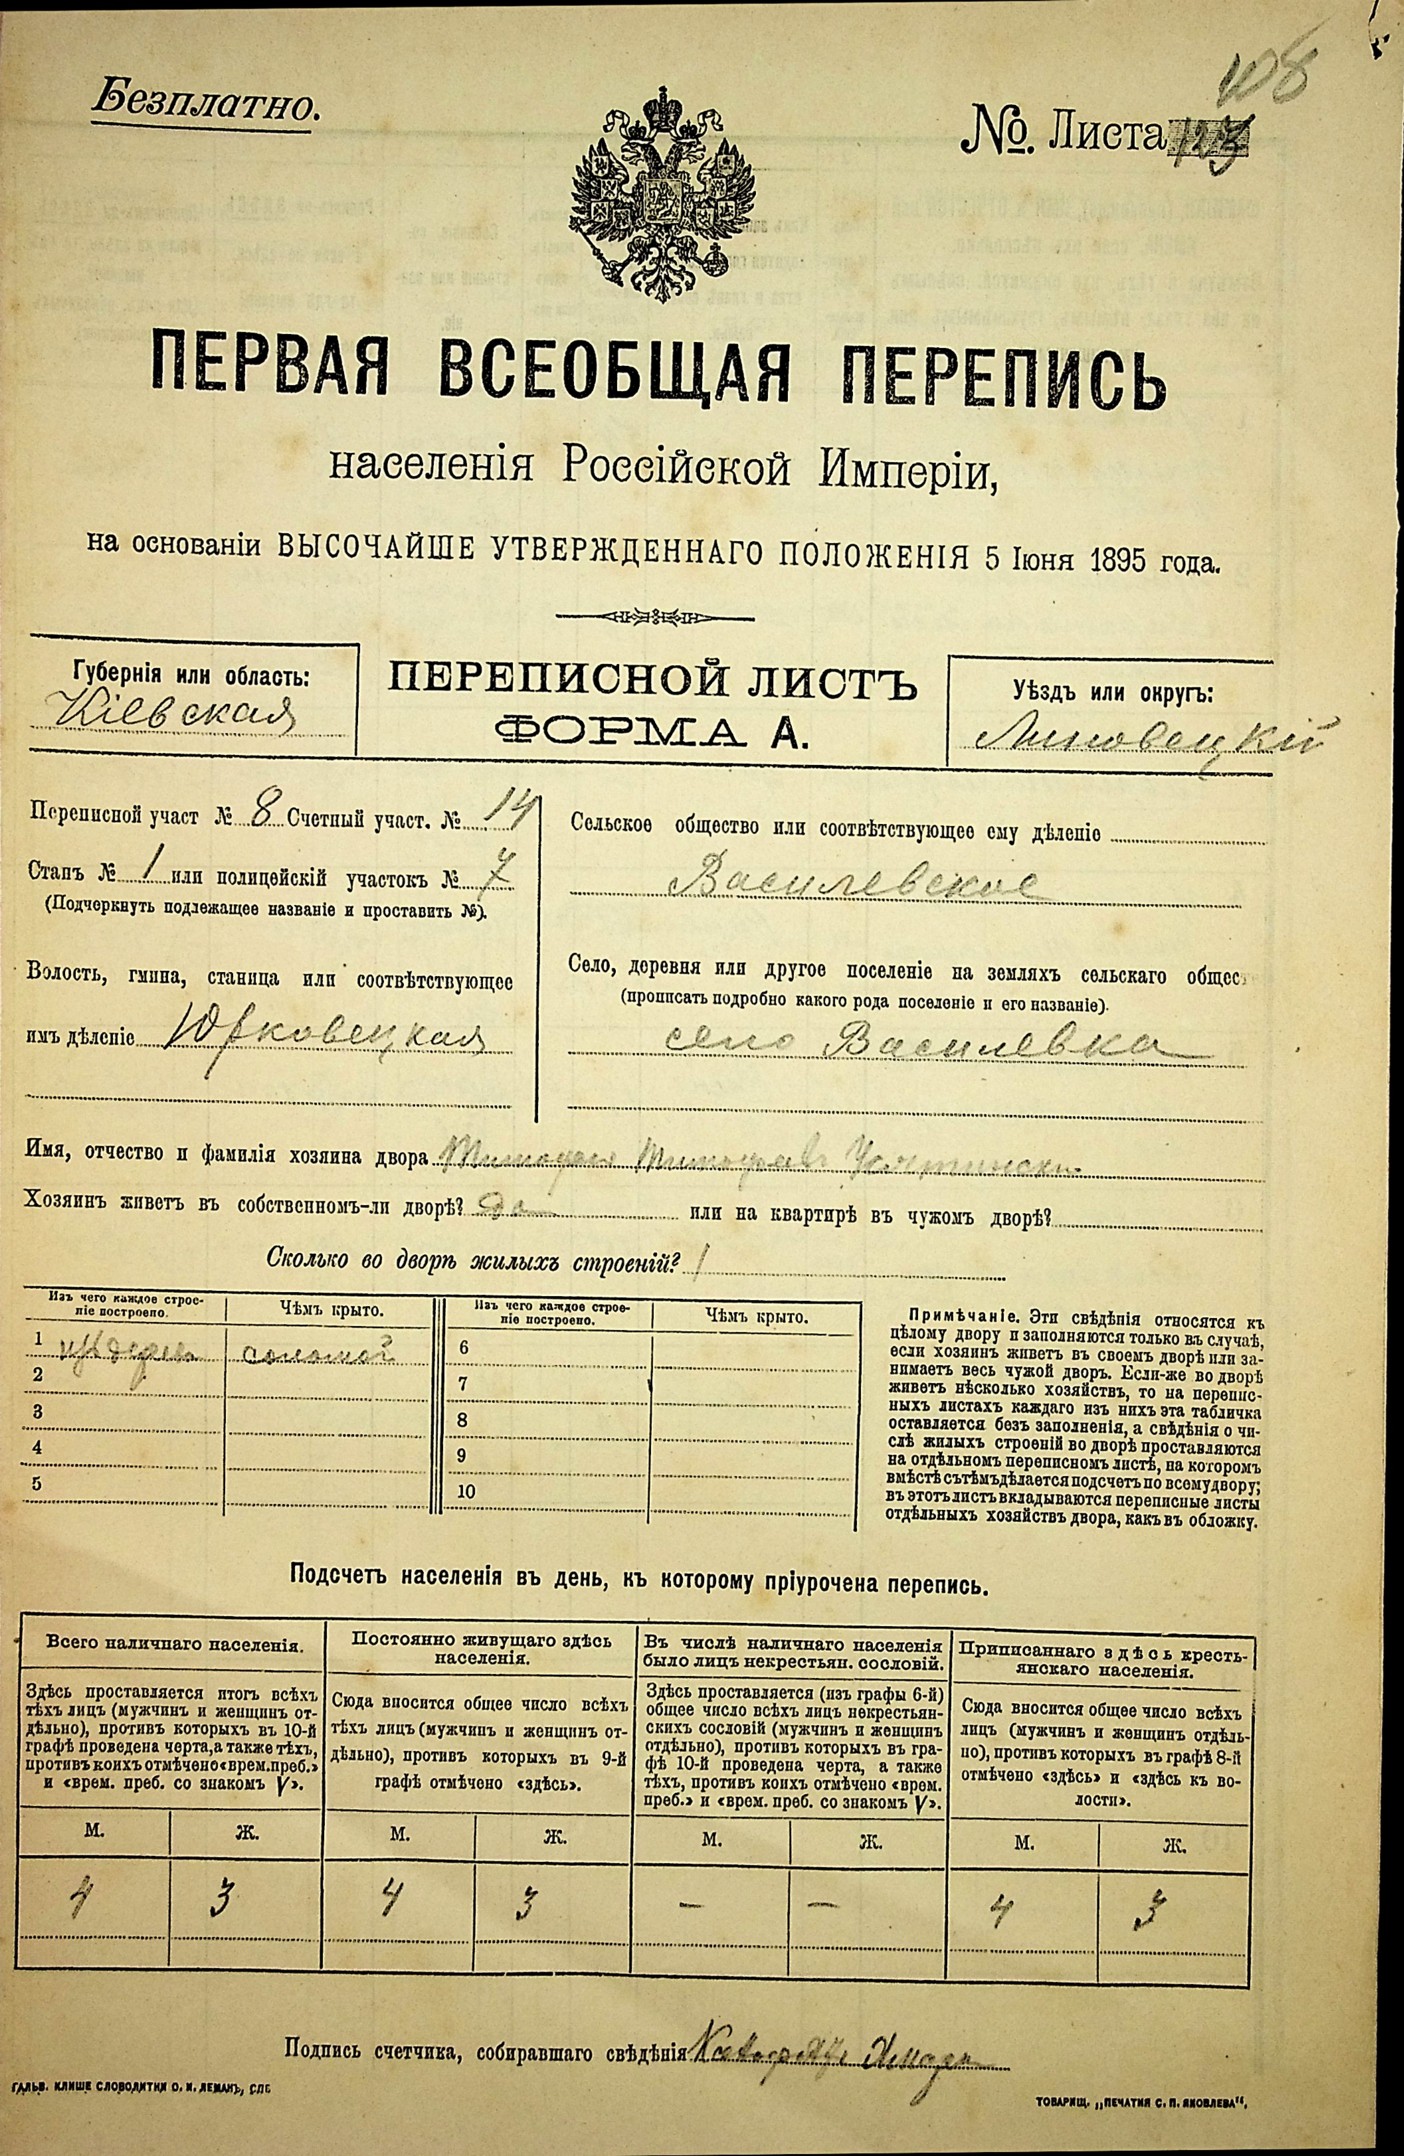 108
Безплатно.
№. Листа 123
ПЕРВАЯ ВСЕОБЩАЯ ПЕРЕПИСЬ
населенія Россійской Имперіи,
на основаніи ВЫСОЧАЙШЕ УТВЕРЖДЕННАГО ПОЛОЖЕНІЯ 5 Іюня 1895 года.
Губернія или область:
Кіевская
ПЕРЕПИСНОЙ ЛИСТЪ
ФОРМА А.
Уѣздъ или округъ:
Липовецкій
Переписной участ № 8 Счетный участ. № 14
Станъ № 1 или полицейскій участокъ № 7
(Подчеркнуть подлежащее названіе и проставить №).
Волость, гмина, станица или соотвѣтствующее
имъ дѣленіе Юрковецкая
Сельское общество или соотвѣтствующее ему дѣленіе
Василевское
Село, деревня или другое поселеніе на земляхъ сельскаго общест
(прописать подробно какого рода поселеніе и его названіе).
село Василевка
Имя, отчество и фамилія хозяина двора Тимофея Тимофеевъ
Хозяинъ живетъ въ собственномъ-ли дворѣ? да или на квартирѣ въ чужомъ дворѣ?
Сколько во дворѣ жилыхъ строеній? 1
Изъ чего каждое строе-
ніе построено.
Чѣмъ крыто.
Изъ чего каждое строе-
ніе построено.
Чѣмъ крыто.
1 изъ дерева соломой 6
2 7
3 8
4 9
5 10
Примѣчаніе. Эти свѣдѣнія относятся къ
цѣлому двору и заполняются только въ случаѣ,
если хозяинъ живетъ въ своемъ дворѣ или за-
нимаетъ весь чужой дворъ. Если-же во дворѣ
живетъ нѣсколько хозяйствъ, то на перепис-
ныхъ листахъ каждаго изъ нихъ эта табличка
оставляется безъ заполненія, а свѣдѣнія о чи-
слѣ жилыхъ строеній во дворѣ проставляются
на отдѣльномъ переписномъ листѣ, на которомъ
вмѣстѣ съ тѣмъ дѣлается подсчетъ по всему двору;
въ этотъ листъ вкладываются переписные листы
отдѣльныхъ хозяйствъ двора, какъ въ обложку.
Подсчетъ населенія въ день, къ которому пріурочена перепись.
Всего наличнаго населенія.
Здѣсь проставляется итогъ всѣхъ
тѣхъ лицъ (мужчинъ и женщинъ от-
дѣльно), противъ которыхъ въ 10-й
графѣ проведена черта, а также тѣхъ,
противъ коихъ отмѣчено «врем. преб.»
и «врем. преб. со знакомъ V».
Постоянно живущаго здѣсь
населенія.
Сюда вносится общее число всѣхъ
тѣхъ лицъ (мужчинъ и женщинъ от-
дѣльно), противъ которыхъ въ 9-й
графѣ отмѣчено «здѣсь».
Въ числѣ наличнаго населенія
было лицъ некрестьян. сословій.
Здѣсь проставляется (изъ графы 6-й)
общее число всѣхъ лицъ некрестьян-
скихъ сословій (мужчинъ и женщинъ
отдѣльно), противъ которыхъ въ гра-
фѣ 10-й проведена черта, а также
тѣхъ, противъ коихъ отмѣчено «врем.
преб.» и «врем. преб. со знакомъ V».
Приписаннаго здѣсь кресть-
янскаго населенія.
Сюда вносится общее число всѣхъ
лицъ (мужчинъ и женщинъ отдѣль-
но), противъ которыхъ въ графѣ 8-й
отмѣчено «здѣсь» и «здѣсь къ во-
лости».
М. Ж. М. Ж. М. Ж. М. Ж.
4 3 4 3 — — 4 3
Подпись счетчика, собиравшаго свѣдѣнія
ГАЛЬВ. КЛИШЕ СЛОВОЛИТНИ О. И. ЛЕМАНЪ, СПБ
ТОВАРИЩ. „ПЕЧАТНЯ С. П. ЯКОВЛЕВА“.